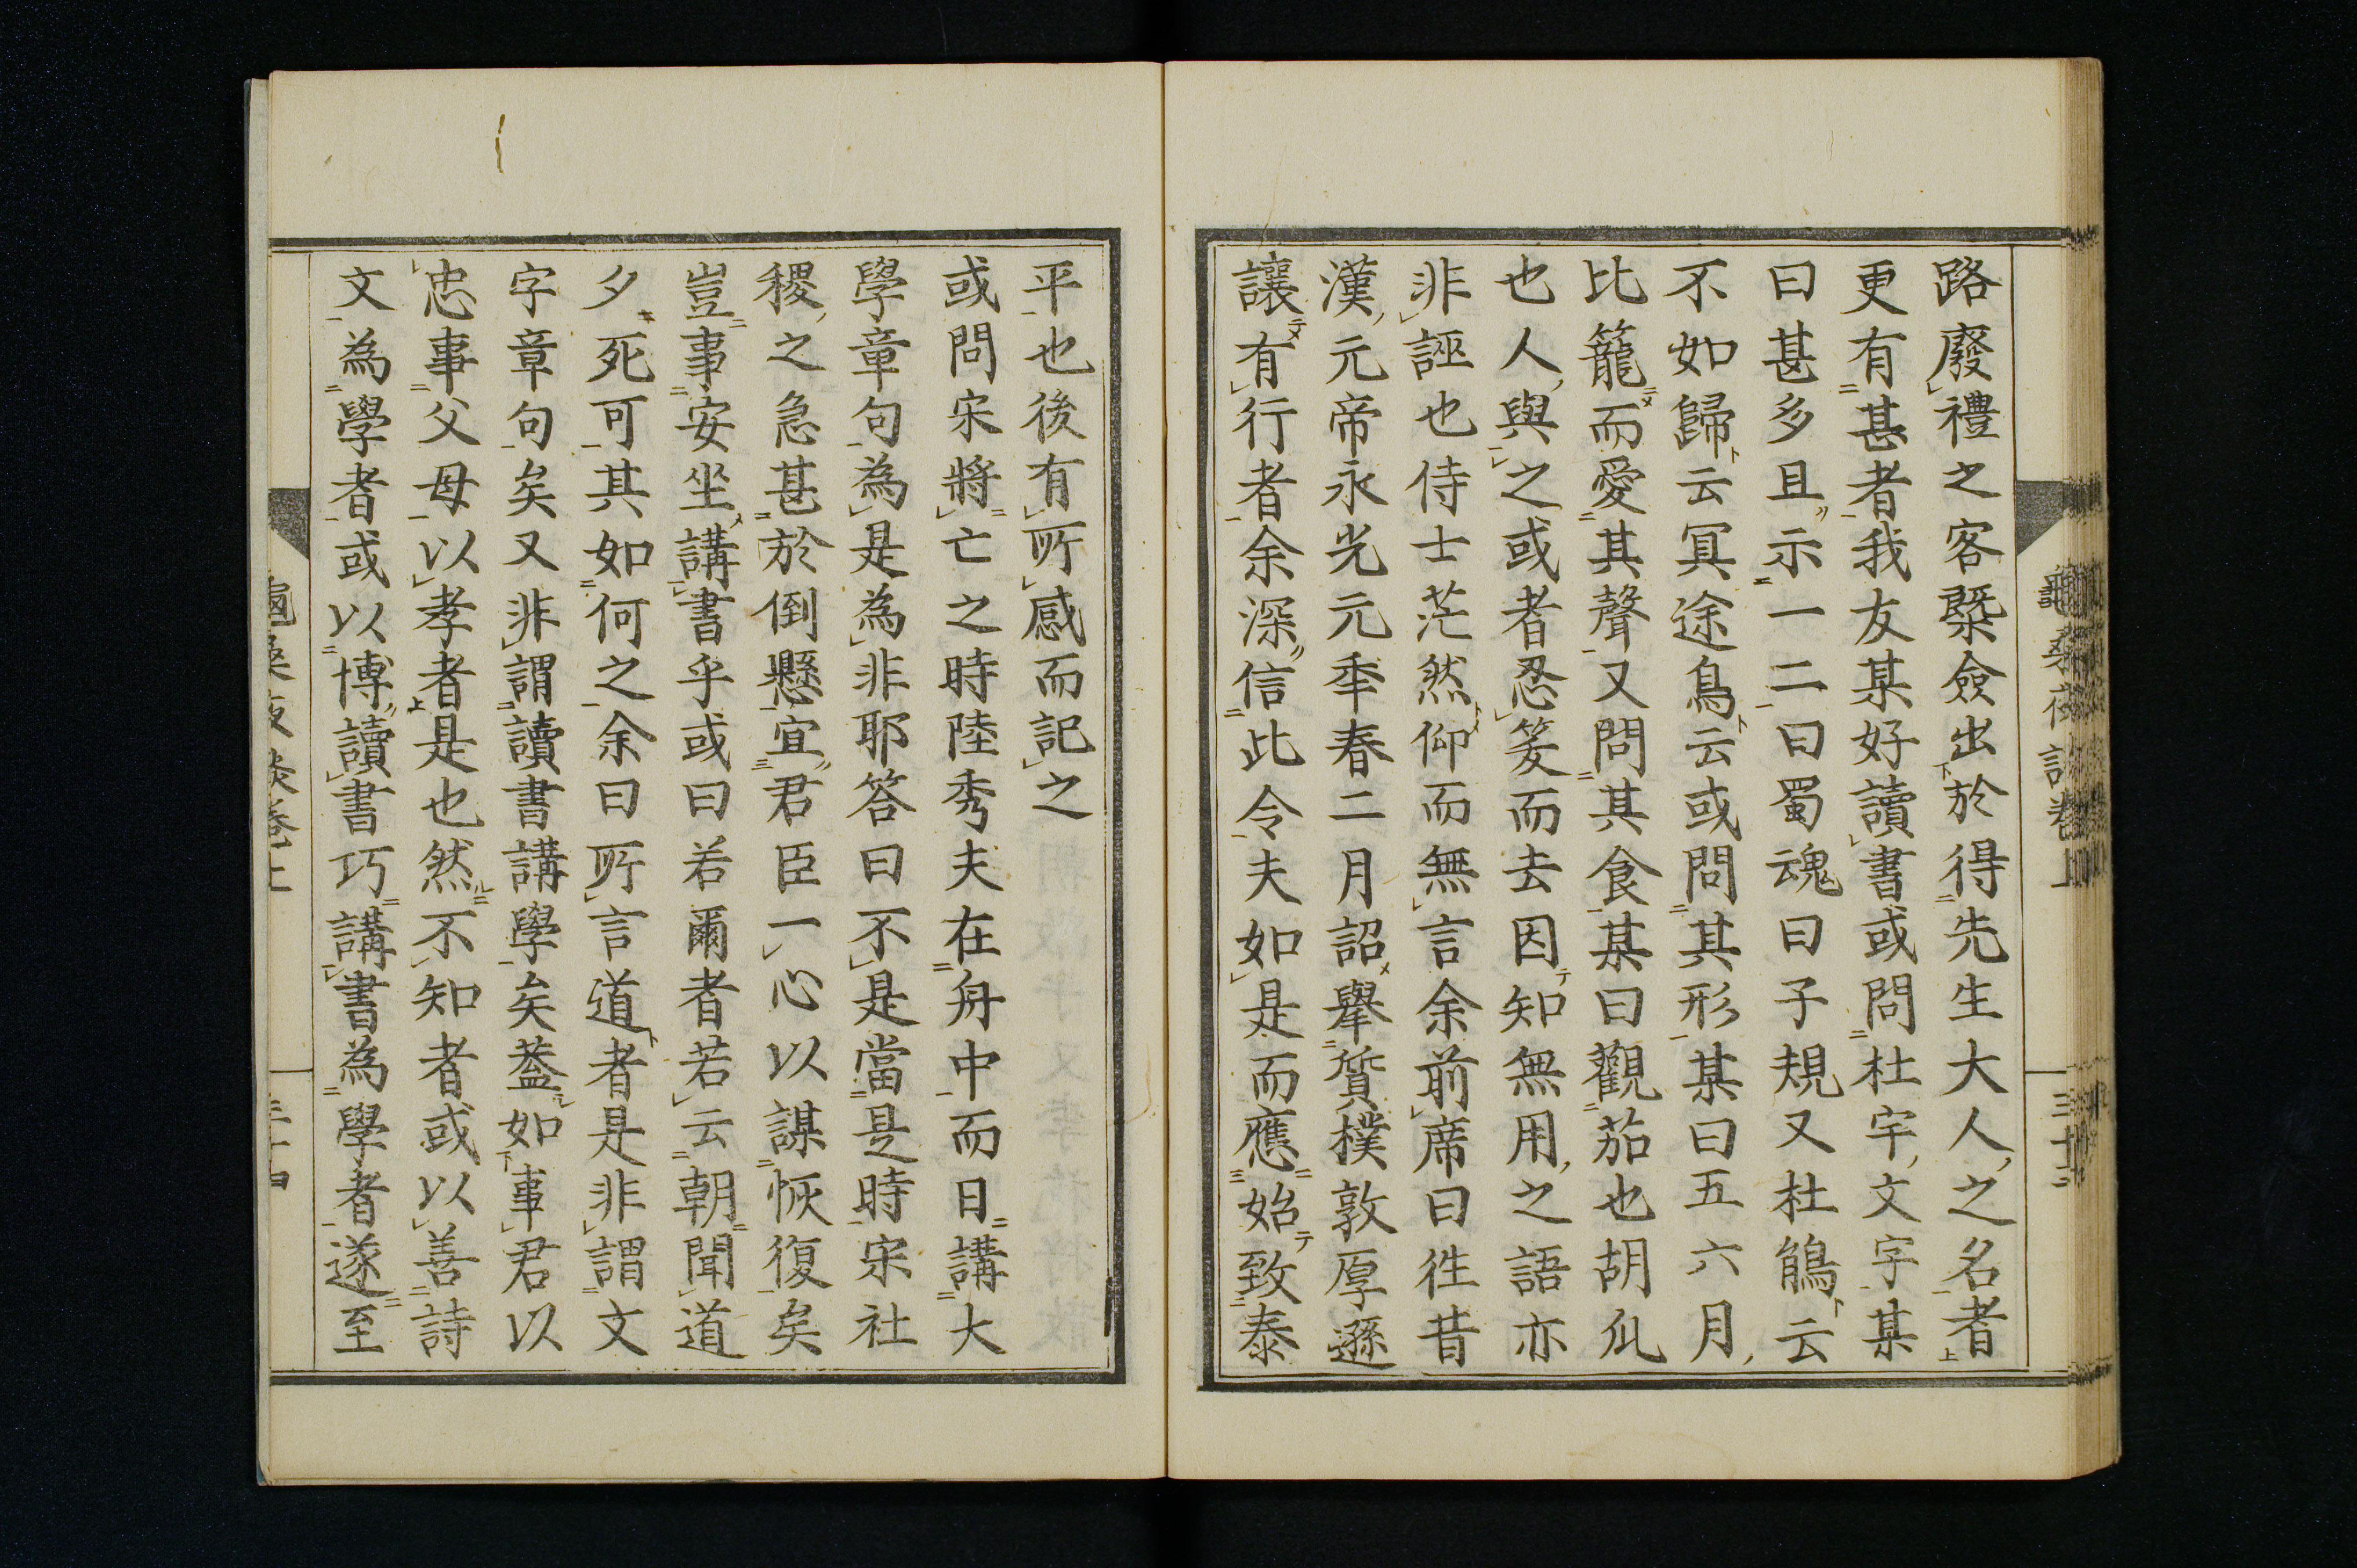 路廢禮之客槩僉出於得先生大人之名者
更有甚者我友某好讀書或問杜宇文字某
曰甚多且示一二曰蜀魂曰子規又杜鵑云
不如歸云冥途鳥云或問其形某曰五六月
比籠而愛其聲又問其食某曰觀茄也胡瓜
也人與之或者忍笑而去因知無用之語亦
非誣也侍士茫然仰而無言余前席曰徃昔
漢元帝永光元年春二月詔舉質樸敦厚遜
讓有行者余深信此令夫如是而應始致泰
平也後有所感而記之
或問宋將亡之時陸秀夫在舟中而日講大
學章句為是為非耶答曰不是當是時宋社
稷之急甚於倒懸宜君臣一心以謀恢復矣
豈事安坐講書乎或曰若爾者若云朝聞道
夕死可其如何之余曰所言道者是非謂文
字章句矣又非謂讀書講學矣葢如事君以
忠事父母以孝者是也然不知者或以善詩
文為學者或以博讀書巧講書為學者遂至